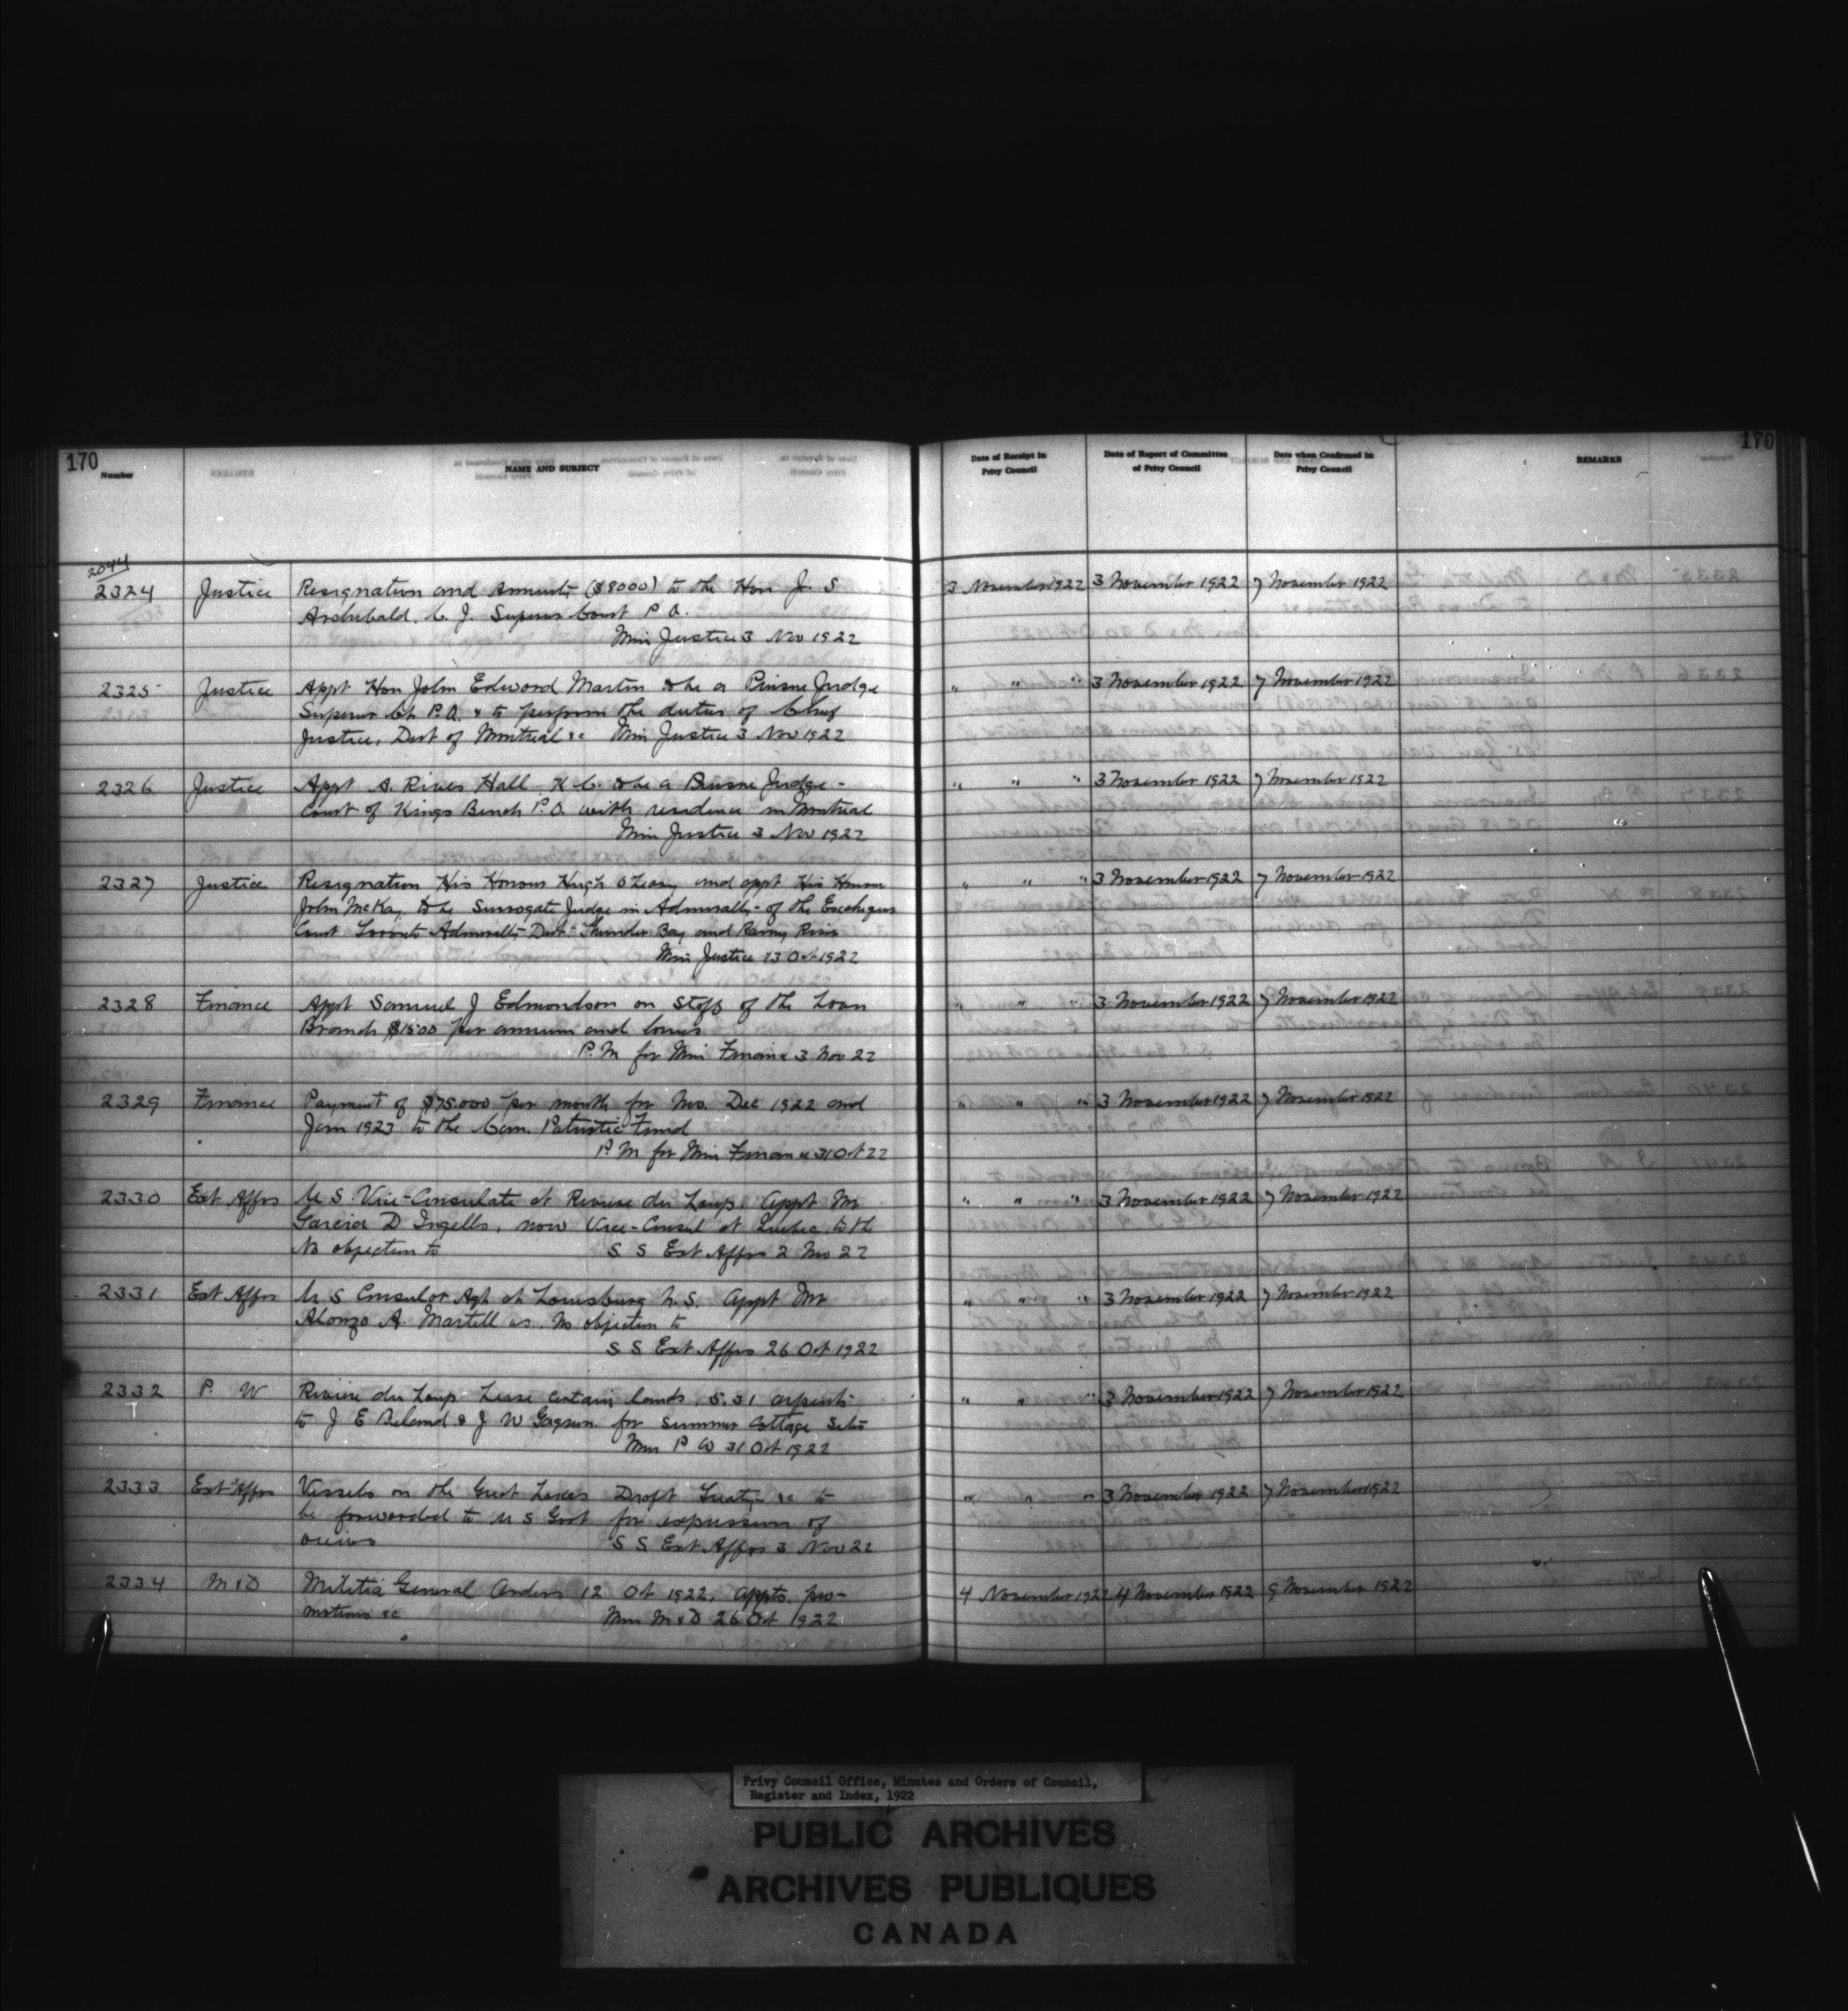 170
170
Number
NAME AND SUBJECT
Date of Receipt in Privy Council
Date of Report of Committee of Privy Council
Date when Confirmed in Privy Council
REMARKS
2044
2324 Justice Resignation and Annuity ($8000) to the Hon J. S 3 November 1922 3 November 1922 7 November 1922
Archibald, C. J. Superior Court P. Q.
Min Justice 3 Nov 1922
2325 Justice Appt Hon John Edward Martin to be a Puisne Judge " " " 3 November 1922 7 November 1922
Superior Ct. P.Q. & to perform the duties of Chief
Justice, Dist of Montreal &c Min Justice 3 Nov 1922
2326 Justice Appt A. Rives Hall K C. to be a Puisne Judge - " " " 3 November 1922 7 November 1922
Court of Kings Bench P.Q. with residence in Montreal
Min Justice 3 Nov 1922
2327 Justice Resignation His Honour Hugh O'Leary and appt His Honour " " " 3 November 1922 7 November 1922
John McKay, to be Surrogate Judge in Admiralty of the Exchequer
Court Toronto Admiralty Dist Thunder Bay and Rainy River
Min Justice 13 Oct 1922
2328 Finance Appt Samuel J Edmondson on Staff of the Loan " " " 3 November 1922 7 November 1922
Branch $1500 per annum and bonus
P. M for Min Finance 3 Nov 22
2329 Finance Payment of $75.000 per month for Nov. Dec 1922 and " " " 3 November 1922 7 November 1922
Jan 1923 to the Can. Patriotic Fund
P. M for Min Finance 31 Oct 22
2330 Ext Affrs U S Vice-Consulate at Riviere du Loup. Appt Mr " " " 3 November 1922 7 November 1922
Garcia D Ingells, now Vice-Consul at Quebec, to the
No objection to S S Ext Affrs 2 Nov 22
2331 Ext Affrs U S Consular Agt at Louisburg N. S. Appt Mr " " " 3 November 1922 7 November 1922
Alonzo A. Martell as. No objection to
S S Ext Affrs 26 Oct 1922
2332 P. W Riviere du Loup Lease certain lands, 5.31 arpents " " " 3 November 1922 7 November 1922
to J E Beland & J W Gagnon for summer Cottage Site
Min P W 31 Oct 1922
2333 Ext Affrs Vessels on the Great Lakes Draft Treaty &c to " " " 3 November 1922 7 November 1922
be forwarded to U S Govt for expression of
views S S Ext Affrs 3 Nov 22
2334 M & D Militia General Orders 12 Oct 1922, appts. pro- 4 November 1922 4 November 1922 9 November 1922
motions &c Min M & D 26 Oct 1922
Privy Council Office, Minutes and Orders of Council,
Register and Index, 1922
PUBLIC ARCHIVES
ARCHIVES PUBLIQUES
CANADA